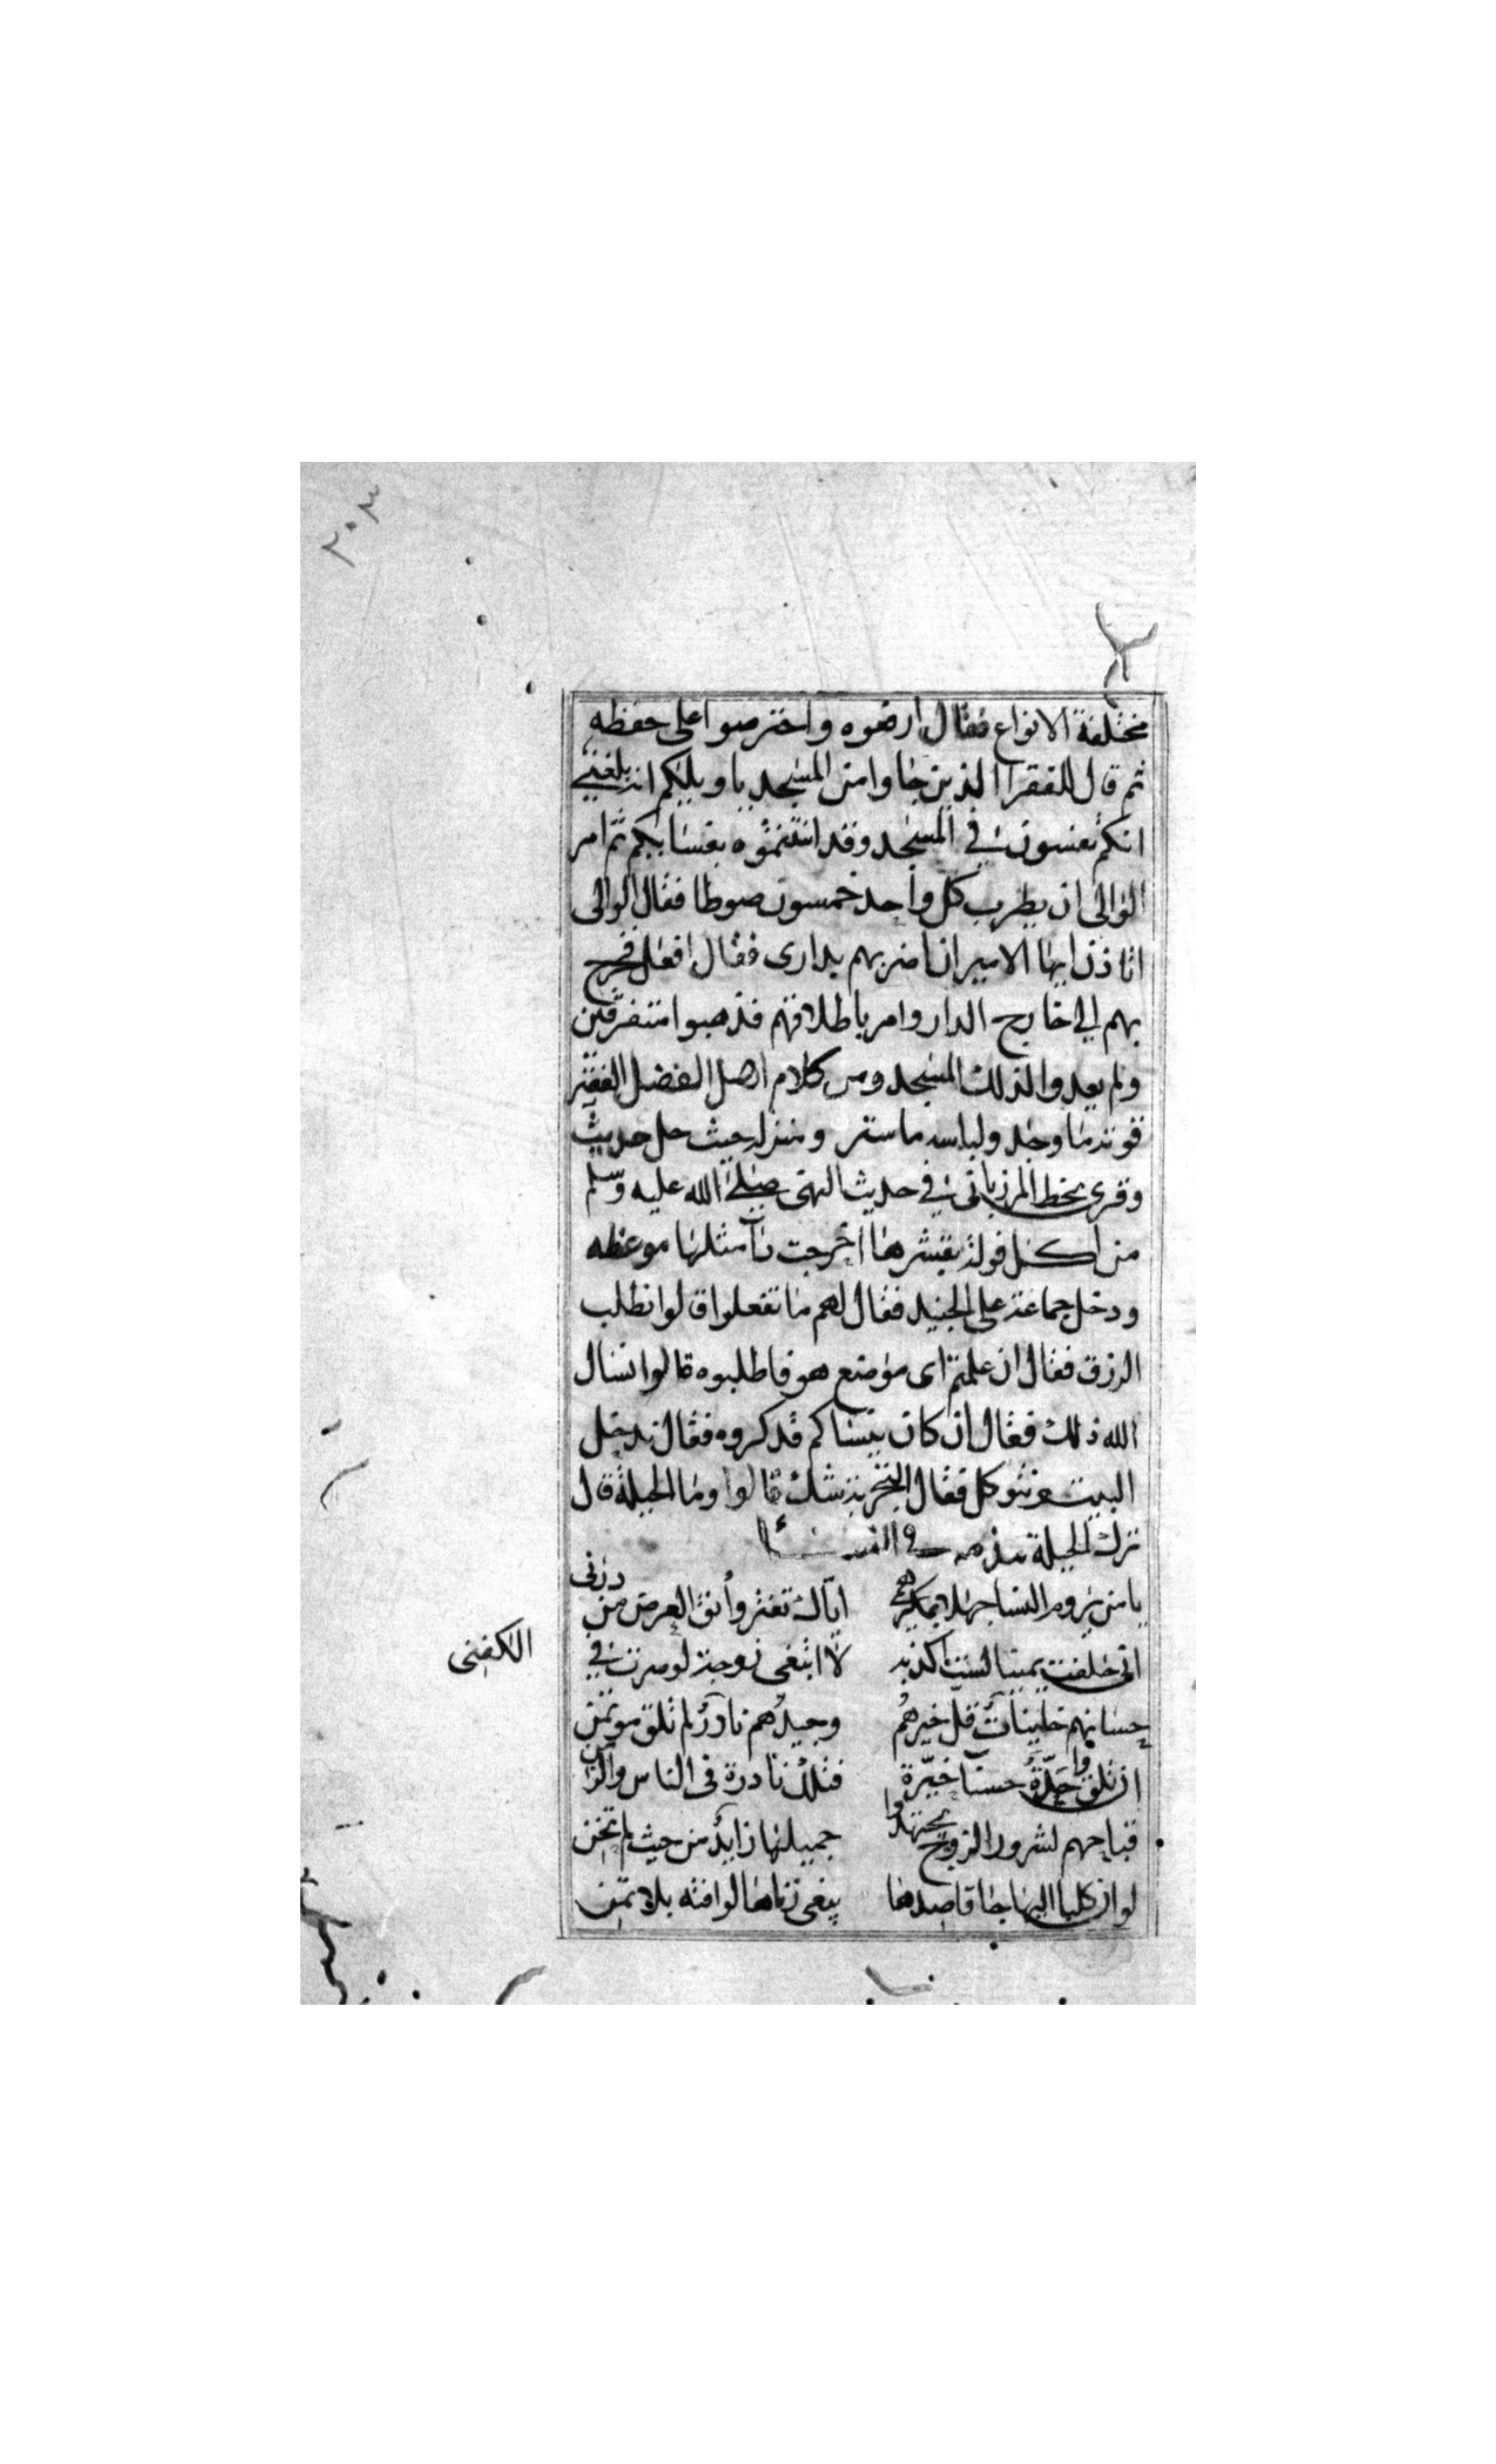 ٢٠٣
مختلفة الانواع فقال ارفعوه واحترصوا على حفظه
ثم قال للفقرا الذين جاوا من المسجد يا ويلكم انه بلغني
انكم تفسون في المسجد وقد انتنتموه بفسايكم ثم امر
الوالى ان يظرب كل واحد خمسون صوطا فقال الوالى
اتاذن ايها الامير ان اضربهم بدارى فقال افعل فخرج
بهم الي خارج الدار وامر باطلاقهم فذهبوا متفرقين
ولم يعدوا لذلك المسجد ومن كلام اهل الفضل الفقير
قوته ما وجد ولباسه ما ستر ومنزله حيث حل حديث
وقرى بخط المرزبانى في حديث النبى صلى الله عليه وسلم
من اكل فوله بقشرها اخرجت داّ مثلها موعظه
ودخل جماعة على الجنيد فقال لهم ما تفعلوا قالوا نطلب
الرزق فقال ان علمتم اى موضع هو فاطلبوه قالوا نسال
الله ذلك فقال ان كان ينساكم فذكروه فقال ندخل
البيت ونتوكل فقال التجربة شك قالوا وما الحيلة قال
ترك الحيلة مذمه في النسا
يا من يروم النسا جهلا بمكرهم اياك تغتر وأنق العرض من درنى
انى حلفت يمينا لست اكذبه لا ابتغى زوجة لو صرت في الكفنى
حسانهم خاينات قل خيرهم وجيدهم نادر لم تلق موتمن
ان تلقوا حرة حسنا خيرة فتلك نادرة فى الناس والزمن
قباحهم لشرور الزوج يجتهدوا جميلها زايد من حيث لم تخن
لو ان كلبا اليها جا قاصدها يبغى زناها لوافته بلا ثمن